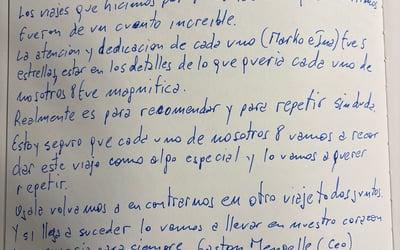 Los viajes que hicimos por
fueron de un cuento increible.
La atención y dedicación de cada uno (Marko e Iva) fue 5
estrellas, estar en los detalles de lo que queria cada uno de
nosotros 8 fue magnifica.
Realmente es para recomendar y para repetir sin duda.
Estoy seguro que cada uno de nosotros 8 vamos a recor
dar este viaje como algo especial y lo vamos a querer
repetir.
Ojala volvamos a encontrarnos en otro viaje todos juntos.
Y si llega a suceder lo vamos a llevar en nuestro corazon
para siempre. (Gaston (ceo)